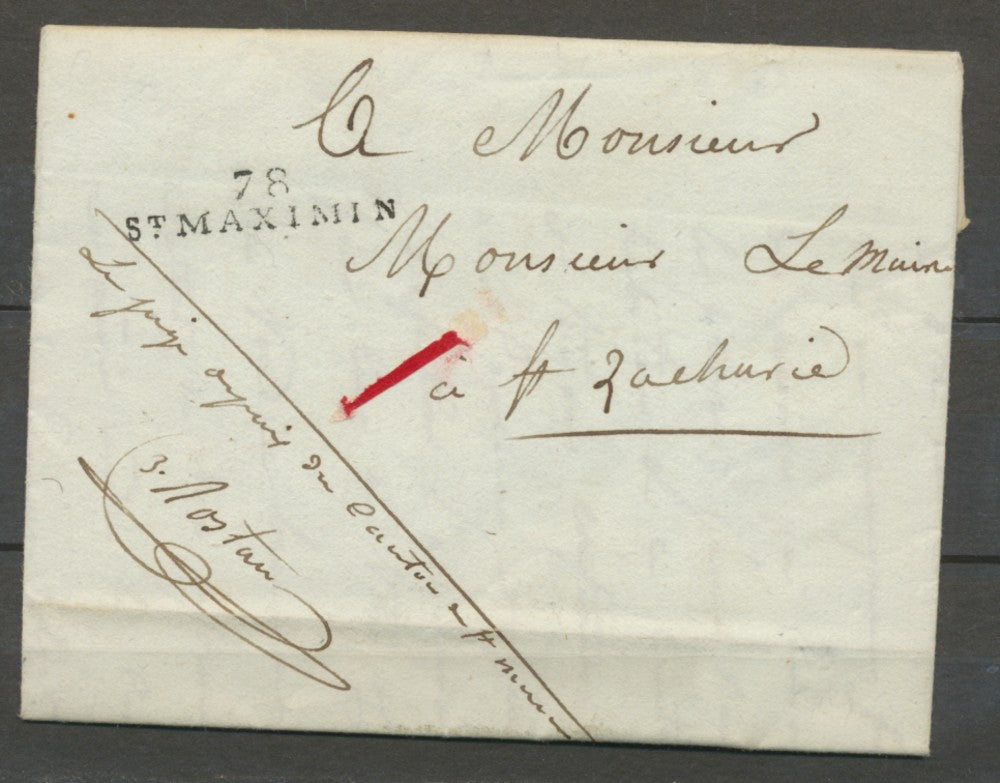 A Monsieur
78
ST MAXIMIN
Monsieur Le Maire
à St Zacharie
Le juge de paix du Canton de St
Rostan